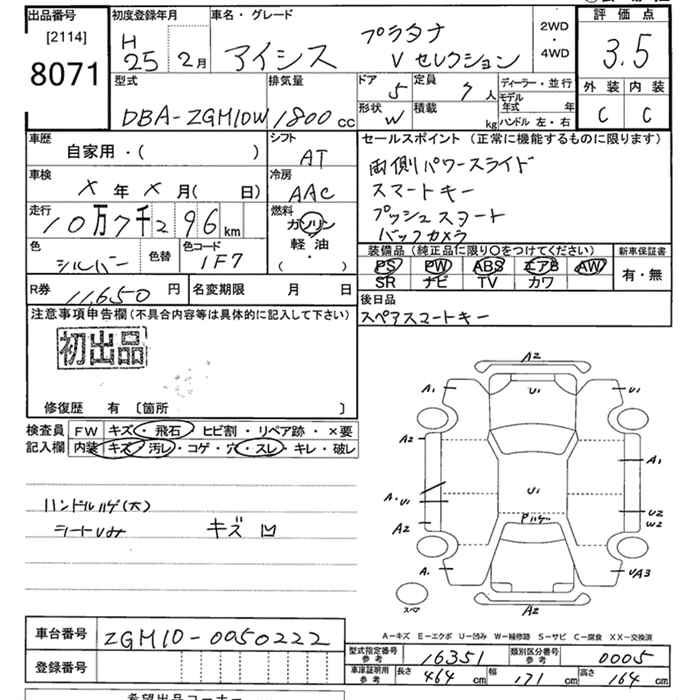 出品番号
[2114]
8071
初度登録年月
H
25 2月
車名・グレード
プラタナ
アイシス V セレクション
2WD
・
4WD
評価点
3.5
外装 内装
C C
型式
DBA-ZGM10W
排気量
1800 cc
ドア 5
定員 7人
形状 W
積載 kg
ディーラー・並行
モデル年式 年
ハンドル 左・右
車歴
自家用・( )
シフト
AT
車検
X 年 X 月( 日)
冷房
AAC
走行
10万7千296km
燃料
ガソリン
軽油
( )
色
シルバー
色替
色コード
1F7
R券 11,650 円
名変期限 月 日
セールスポイント (正常に機能するものに限ります)
両側パワースライド
スマートキー
プッシュスタート
バックカメラ
装備品 (純正品に限り〇をつけてください)
新車保証書
PS PW ABS エアB AW
SR ナビ TV カワ
有・無
後日品
スペアスマートキー
注意事項申告欄(不具合内容等は具体的に記入して下さい)
初出品
修復歴 有 〔箇所 〕
検査員
記入欄
FW キズ・飛石・ヒビ割・リペア跡・×要
内装 キズ・汚レ・コゲ・穴・スレ・キレ・破レ
ハンドルハゲ(大)
キズ 凹
A2
A1 U1 U1
A2 A1
U1
A. U1
U2
W2
A2
Pハゲ
A. UA3
A2
スペア
A-キズ E-エクボ U-凹み W-補修跡 S-サビ C-腐食 XX-交換済
車台番号
ZGM10-0050222
登録番号
型式指定番号
参考
16351
類別区分番号
参考
0005
車庫証明用
参考
長さ 464 cm
幅 171 cm
高さ 164 cm
希望出品コーナー